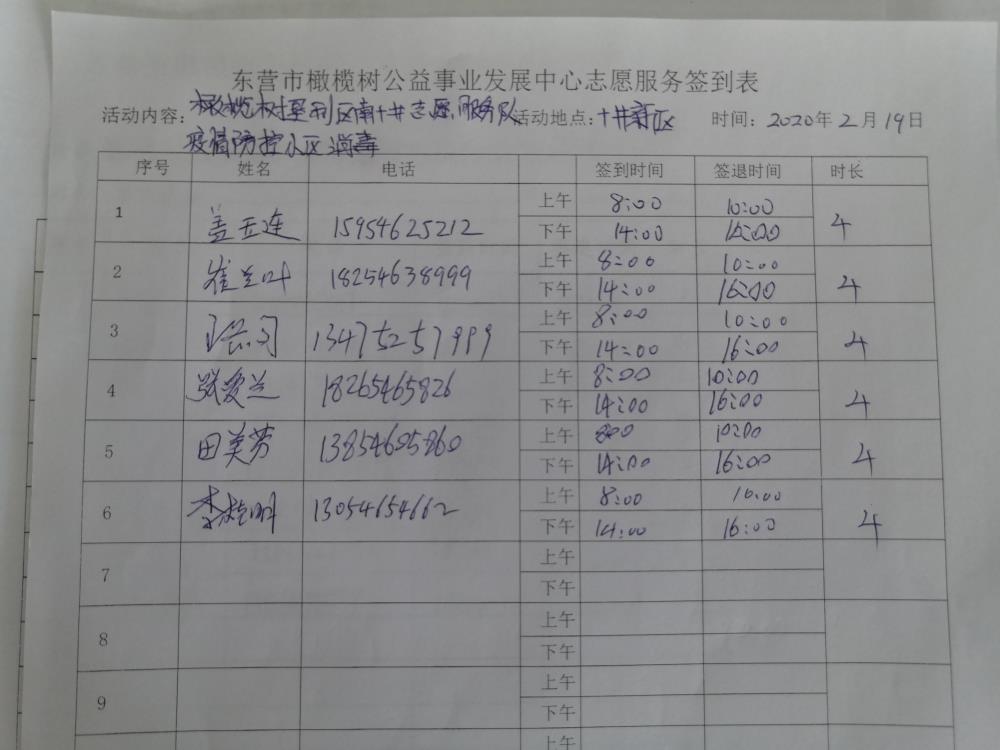 东营市橄榄树公益事业发展中心志愿服务签到表
活动内容: 橄榄树垦利区南十井志愿服务队 活动地点: 十井新区 时间: 2020年2月19日
疫情防控小区消毒
序号 姓名 电话 签到时间 签退时间 时长
1 盖玉连 15954625212 上午 8:00 10:00 4
下午 14:00 16:00
2 崔兰叶 18254638999 上午 8:00 10:00 4
下午 14:00 16:00
3 13475257999 上午 8:00 10:00 4
下午 14:00 16:00
4 张爱兰 18265465826 上午 8:00 10:00 4
下午 14:00 16:00
5 田美芳 13854605860 上午 800 10:00 4
下午 14:00 16:00
6 李桂明 13054654662 上午 8:00 10:00 4
下午 14:00 16:00
7 上午
下午
8 上午
下午
9 上午
下午
上午